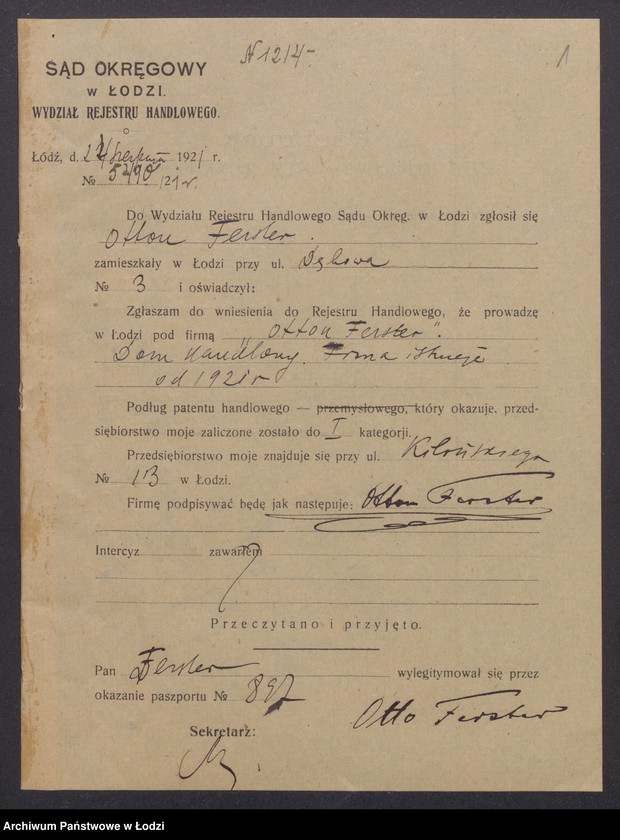 N 1214
1
SĄD OKRĘGOWY
w ŁODZI.
WYDZIAŁ REJESTRU HANDLOWEGO.
Łódź, d. Sierpnia 1921 r.
№ /21 r.
Do Wydziału Rejestru Handlowego Sądu Okręg. w Łodzi zgłosił się
Otton Ferster.
zamieszkały w Łodzi przy ul. Dębowa
№ 3 i oświadczył:
Zgłaszam do wniesienia do Rejestru Handlowego, że prowadzę
w Łodzi pod firmą „Otton Ferster”.
Dom Handlowy. Firma istnieje
od 1921 r
Podług patentu handlowego — przemysłowego, który okazuje, przed-
siębiorstwo moje zaliczone zostało do I kategorji.
Przedsiębiorstwo moje znajduje się przy ul. Kilińskiego
№ 113 w Łodzi.
Firmę podpisywać będę jak następuje: Otton Ferster
Intercyz zawarłem
Przeczytano i przyjęto.
Pan Ferster wylegitymował się przez
okazanie paszportu № 897
Otto Ferster
Sekretarz:
Archiwum Państwowe w Łodzi